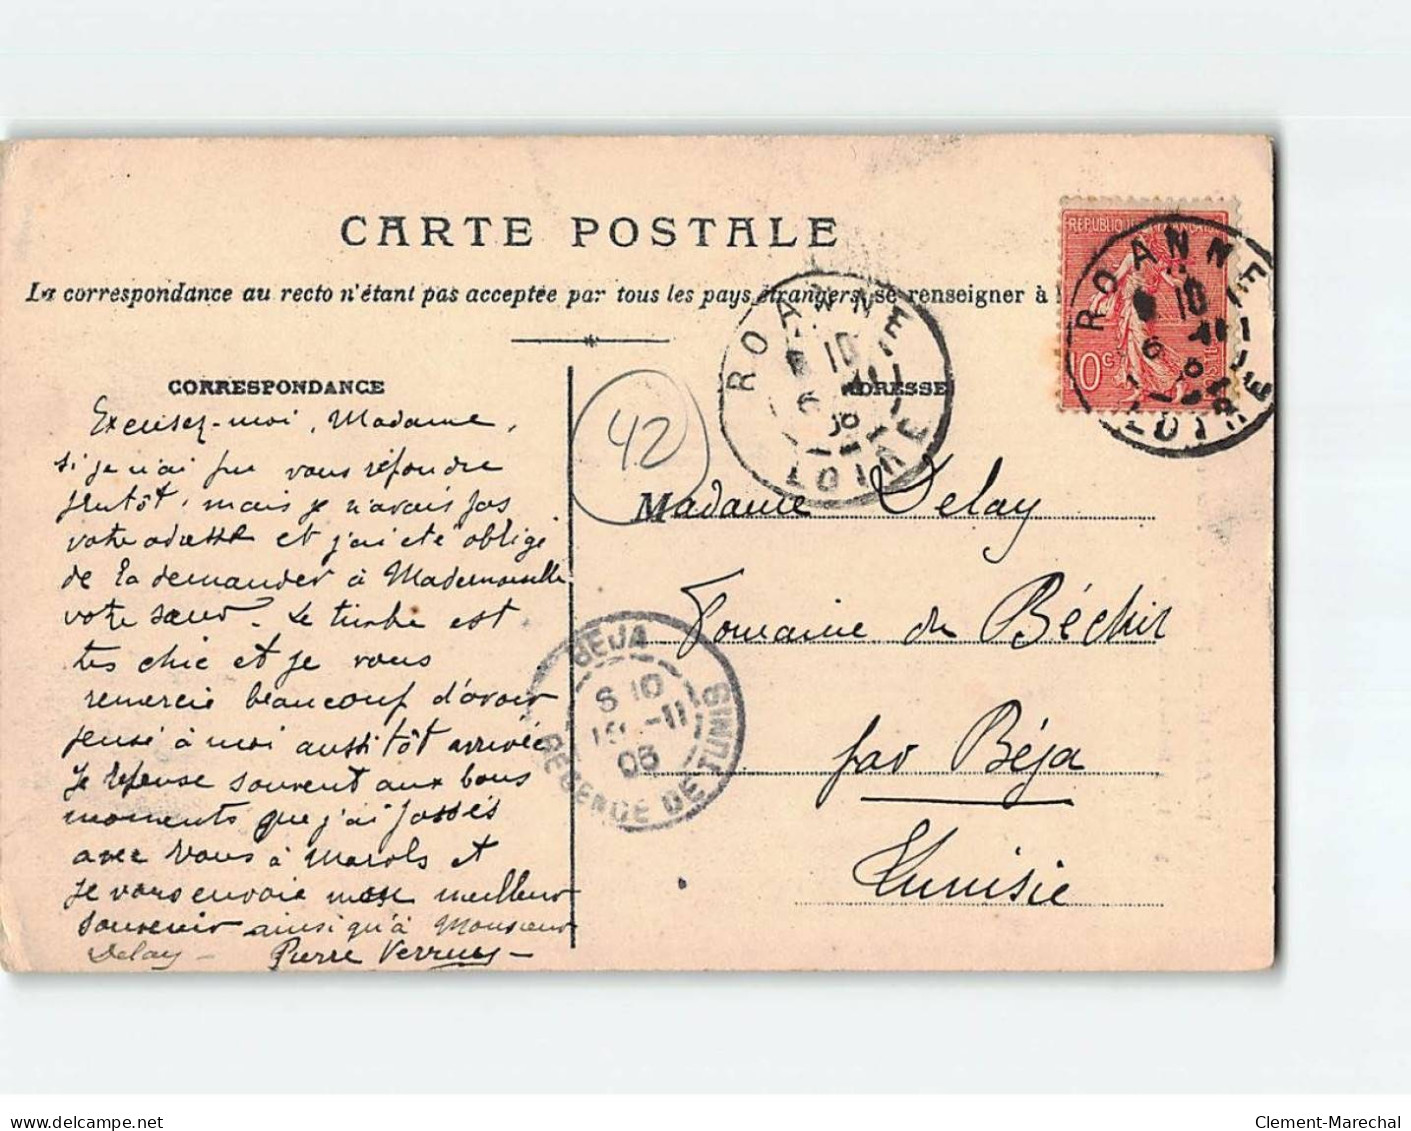 CARTE POSTALE
La correspondance au recto n'étant pas acceptée par tous les pays étrangers, se renseigner à
CORRESPONDANCE
ADRESSE
Excusez-moi, Madame,
si je n'ai pu vous répondre
plutôt, mais je n'avais pas
votre adresse et j'ai été obligé
de la demander à Mademoiselle
votre sœur. Le timbre est
très chic et je vous
remercie beaucoup d'avoir
pensé à moi aussitôt arrivée
Je repense souvent aux bons
moments que j'ai passés
avec vous à Marols et
je vous envoie mon meilleur
souvenir ainsi qu'à Monsieur
Delay - Pierre
42
Madame Delay
Domaine du Béchir
par Béja
Tunisie
REPUBLIQUE FRANCAISE
10c
ROANNE
10
LOIRE
ROANNE
10
LOIRE
BEJA
10
-11
05
REGENCE DE TUNIS
www.delcampe.net
Clement-Marechal